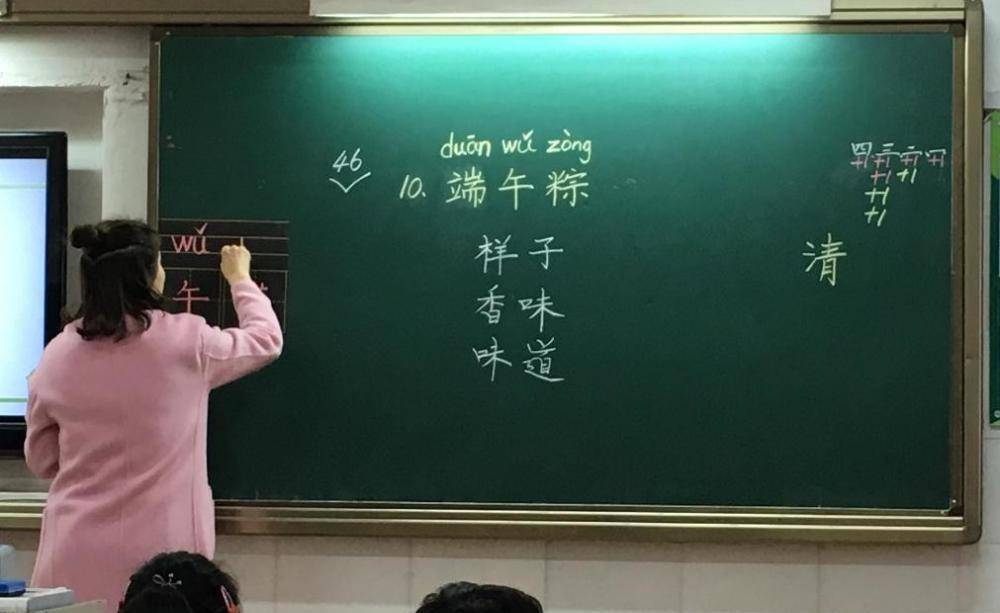 46
duān wǔ zòng
10. 端午粽
样子
香味
味道
wǔ
午
四 三 二 一
+1 +1 +1 +1
+1 +1
+1
+1
清